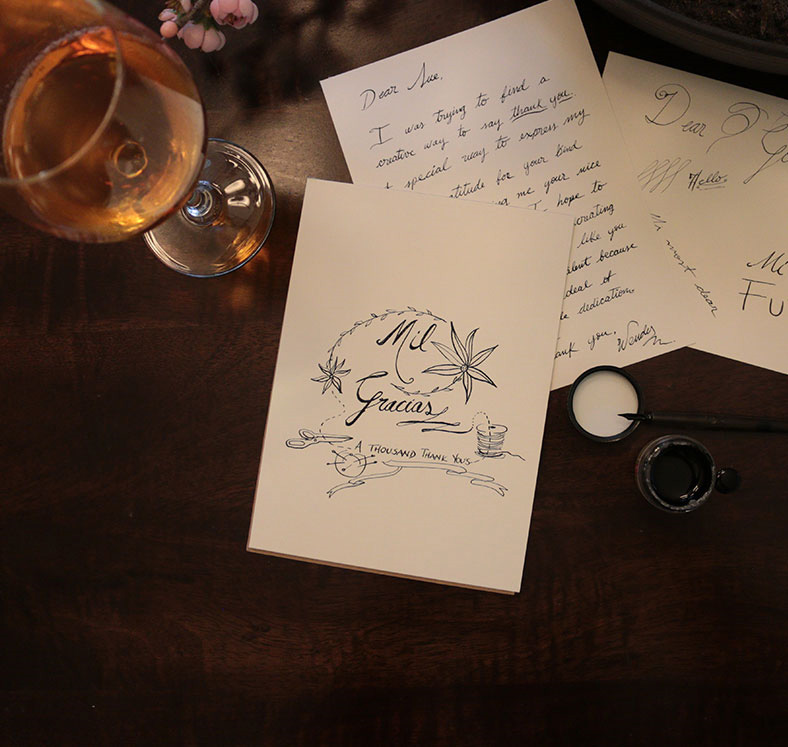 Dear Sue,
I was trying to find a
creative way to say thank you.
A special way to express my
titude for your kind
ng me your nice
I hope to
creating
like you
alent because
deal of
dedication.
ank you, Wendy
Dear
Hello
My most dear
Fu
Mil
Gracias
A THOUSAND THANK YOUS